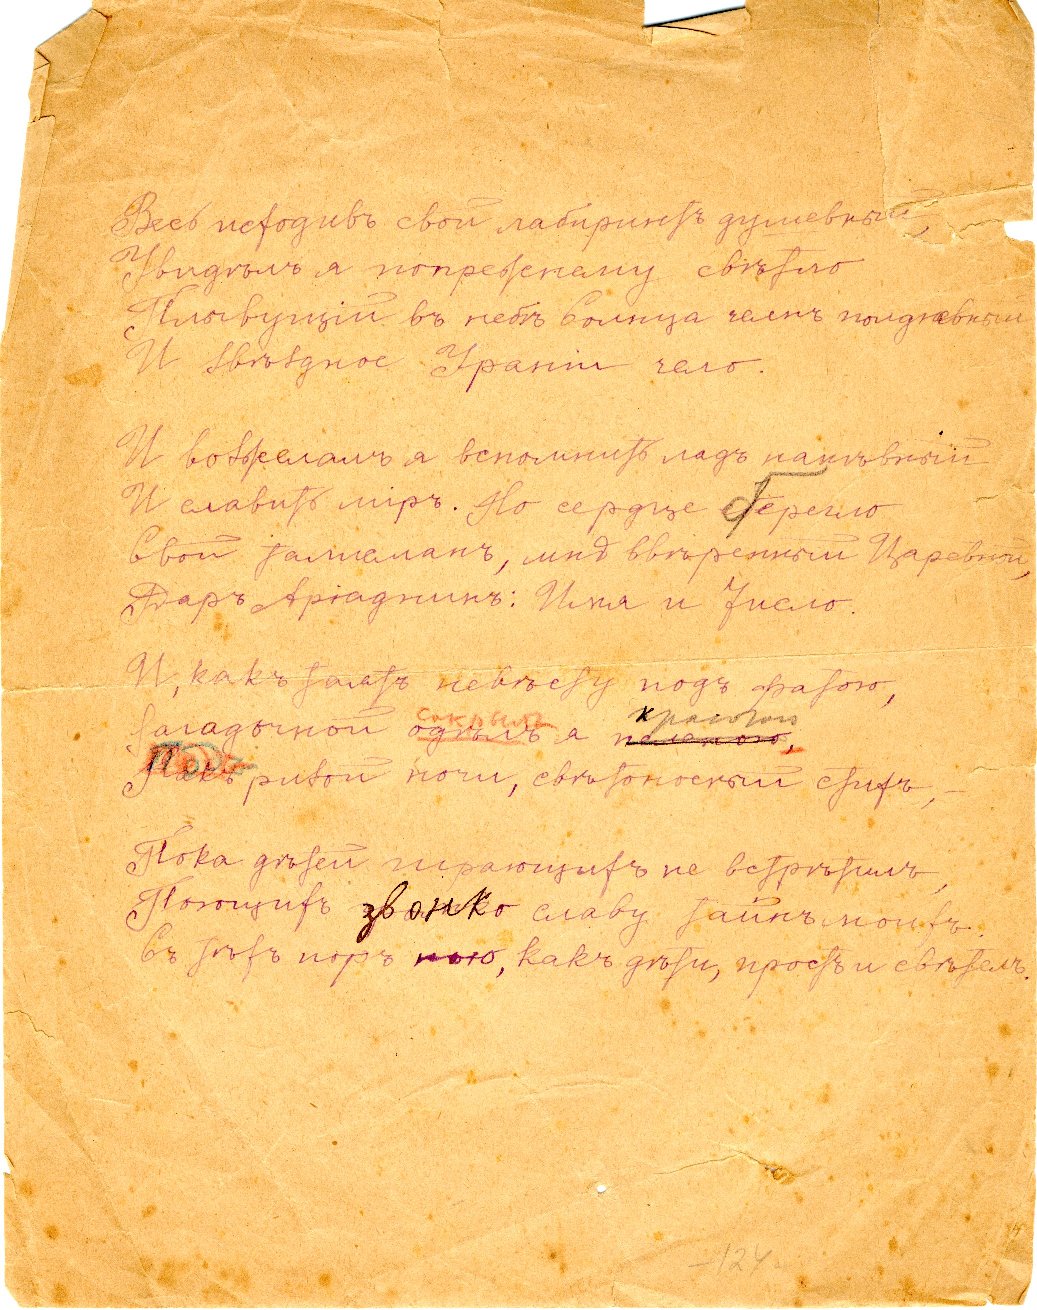 Весь исходивъ свой лабиринтъ душевный,
Увидѣлъ я попрежнему свѣтло
Плывущій въ небѣ Солнца челнъ полдневный
И звѣздное Ураніи чело.
И возжелалъ я вспомнить ладъ напѣвный
И славить міръ. Но сердце берегло
Свой талисманъ, мнѣ ввѣренный Царевной,
Даръ Аріаднинъ: Имя и Число.
И, какъ таятъ невѣсту подъ фатою,
сокрылъ красотою
Загадочной одѣлъ я пеленою,
Подъ ризой ночи, свѣтоносный стихъ, —
Пока дѣтей играющихъ не встрѣтилъ,
Поющихъ звонко славу тайнъ моихъ.
Съ тѣхъ поръ пою, какъ дѣти, простъ и свѣтелъ.
124